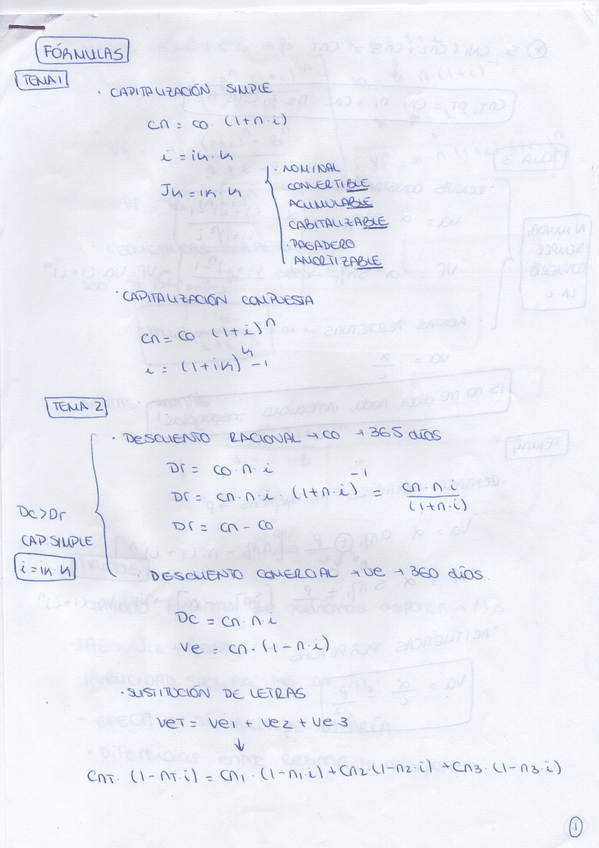 FÓRMULAS
TEMA 1
· CAPITALIZACIÓN SIMPLE
Cn = Co · (1+n·i)
i = ik·k
Jk = ik·k
· NOMINAL
CONVERTIBLE
ACUMULABLE
CABITALIZABLE
· PAGADERO
AMORTIZABLE
· CAPITALIZACIÓN COMPUESTA
Cn = Co (1+i)^n
i = (1+ik)^k -1
TEMA 2
· DESCUENTO RACIONAL → CO → 365 días
Dr = Co·n·i
Dr = Cn·n·i · (1+n·i)^-1 = Cn·n·i / (1+n·i)
Dr = Cn - Co
Dc > Dr
CAP SIMPLE
i = ik·k
· DESCUENTO COMERCIAL → Ve → 360 días
Dc = Cn·n·i
Ve = Cn·(1-n·i)
· SUSTITUCIÓN DE LETRAS
VeT = Ve1 + Ve2 + Ve3
↓
CnT · (1-nT·i) = Cn1 · (1-n1·i) + Cn2 · (1-n2·i) + Cn3 · (1-n3·i)
1